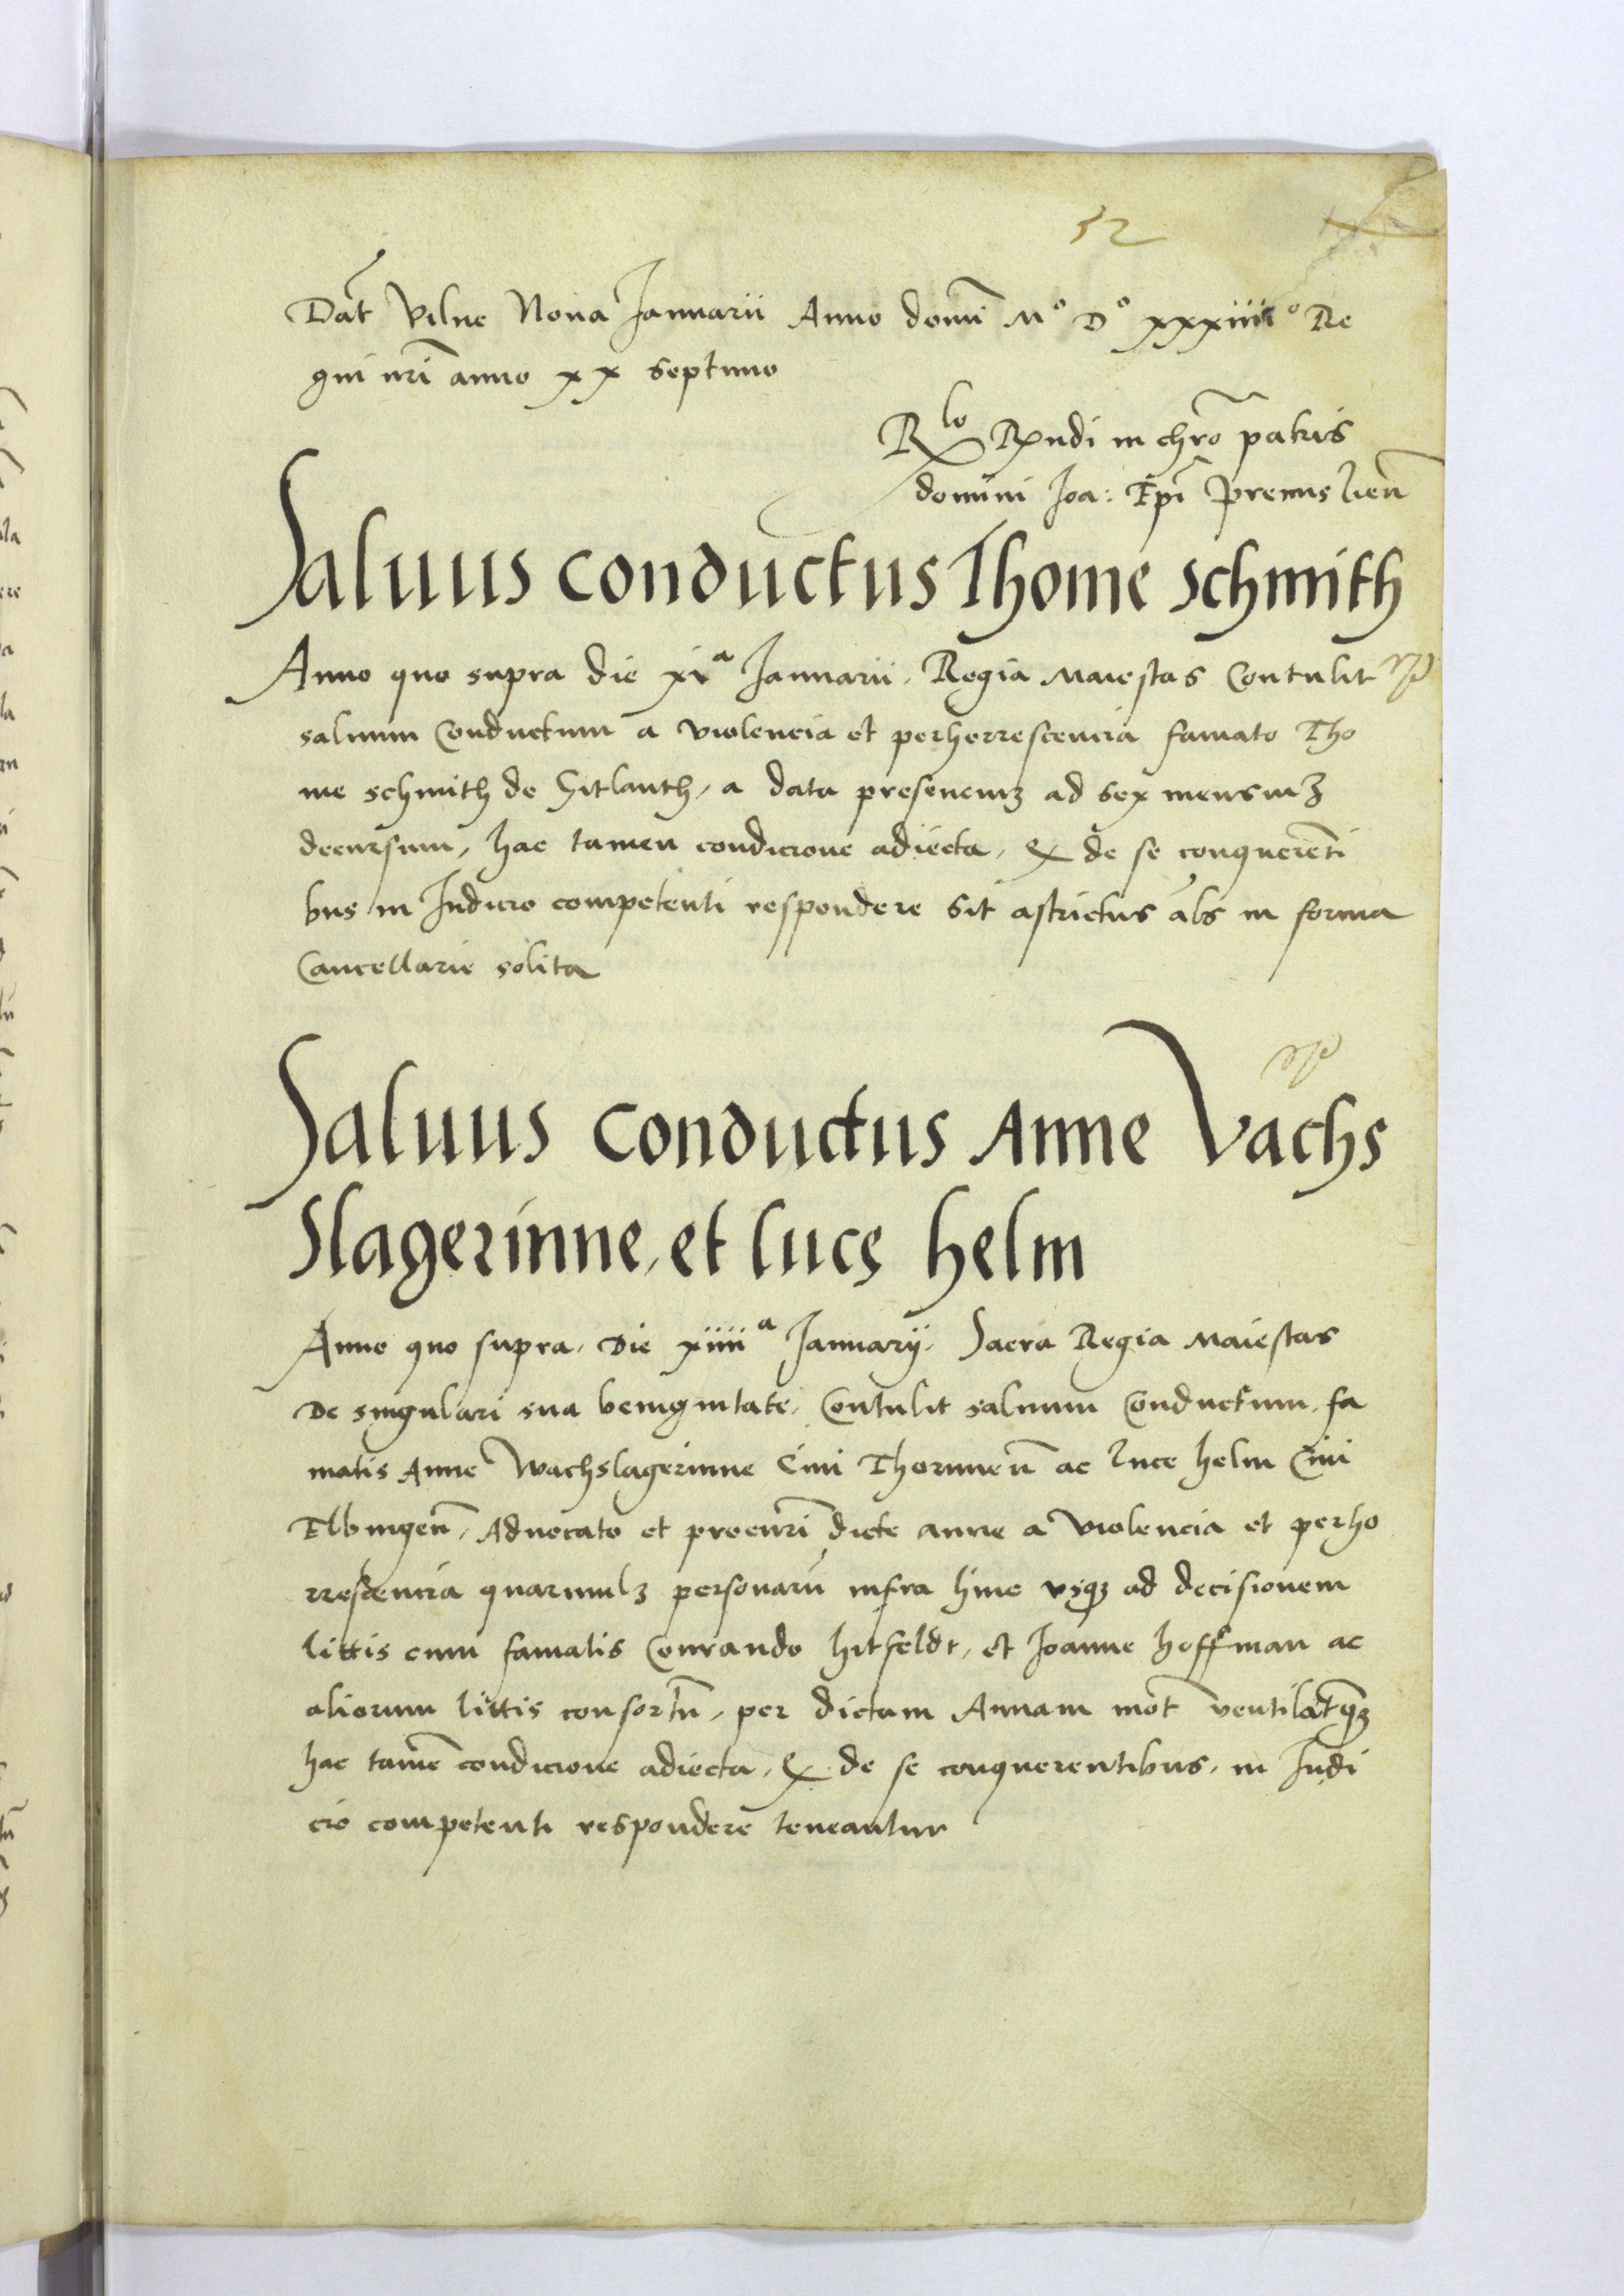 52
Dat̃ Vilne Nona Januarii Anno domĩ Mº Dº xxxiiiiº Re
gni nrĩ anno xx septimo
Rlo Rndi in chrõ patris
domini Joa: Epĩ Premislien̄
Saluus conductus Thome Schmith
Anno quo supra die xiª Januarii, Regia Maiestas Contulit
saluum Conductum a violencia et perhorrescencia famato Tho
me schmith de Hitlanth, a data presencium ad sex mensiuȝ
decursum, hac tamen condicione adiecta, ꝙ de se conquerenti
bus in Judicio competenti respondere sit astrictus als in forma
Cancellarie solita
Saluus Conductus Anne Vachs
Slagerinne, et lucę helm
Anno quo supra, Die xiiiiª Januarij, Sacra Regia Maiestas
De singulari sua benignitate, Contulit saluum Conductum, fa
matis Anne Wachslagerinne Ciui Thorunen̄ ac luce helm Ciui
Elbingen̄, Aduocato et procurĩ dicte anne a violencia et perho
rrescencia quarumlȝ personarũ infra hinc vsqȝ ad decisionem
littis cum famatis Conrando hitfeldt, et Joanne hoffman ac
aliorum littis consortũ, per dictam Annam mot̃ ventilat̃qȝ
hac tamẽ condicione adiecta, ꝙ de se conquerentibus, in Judi
cio competenti respondere teneantur